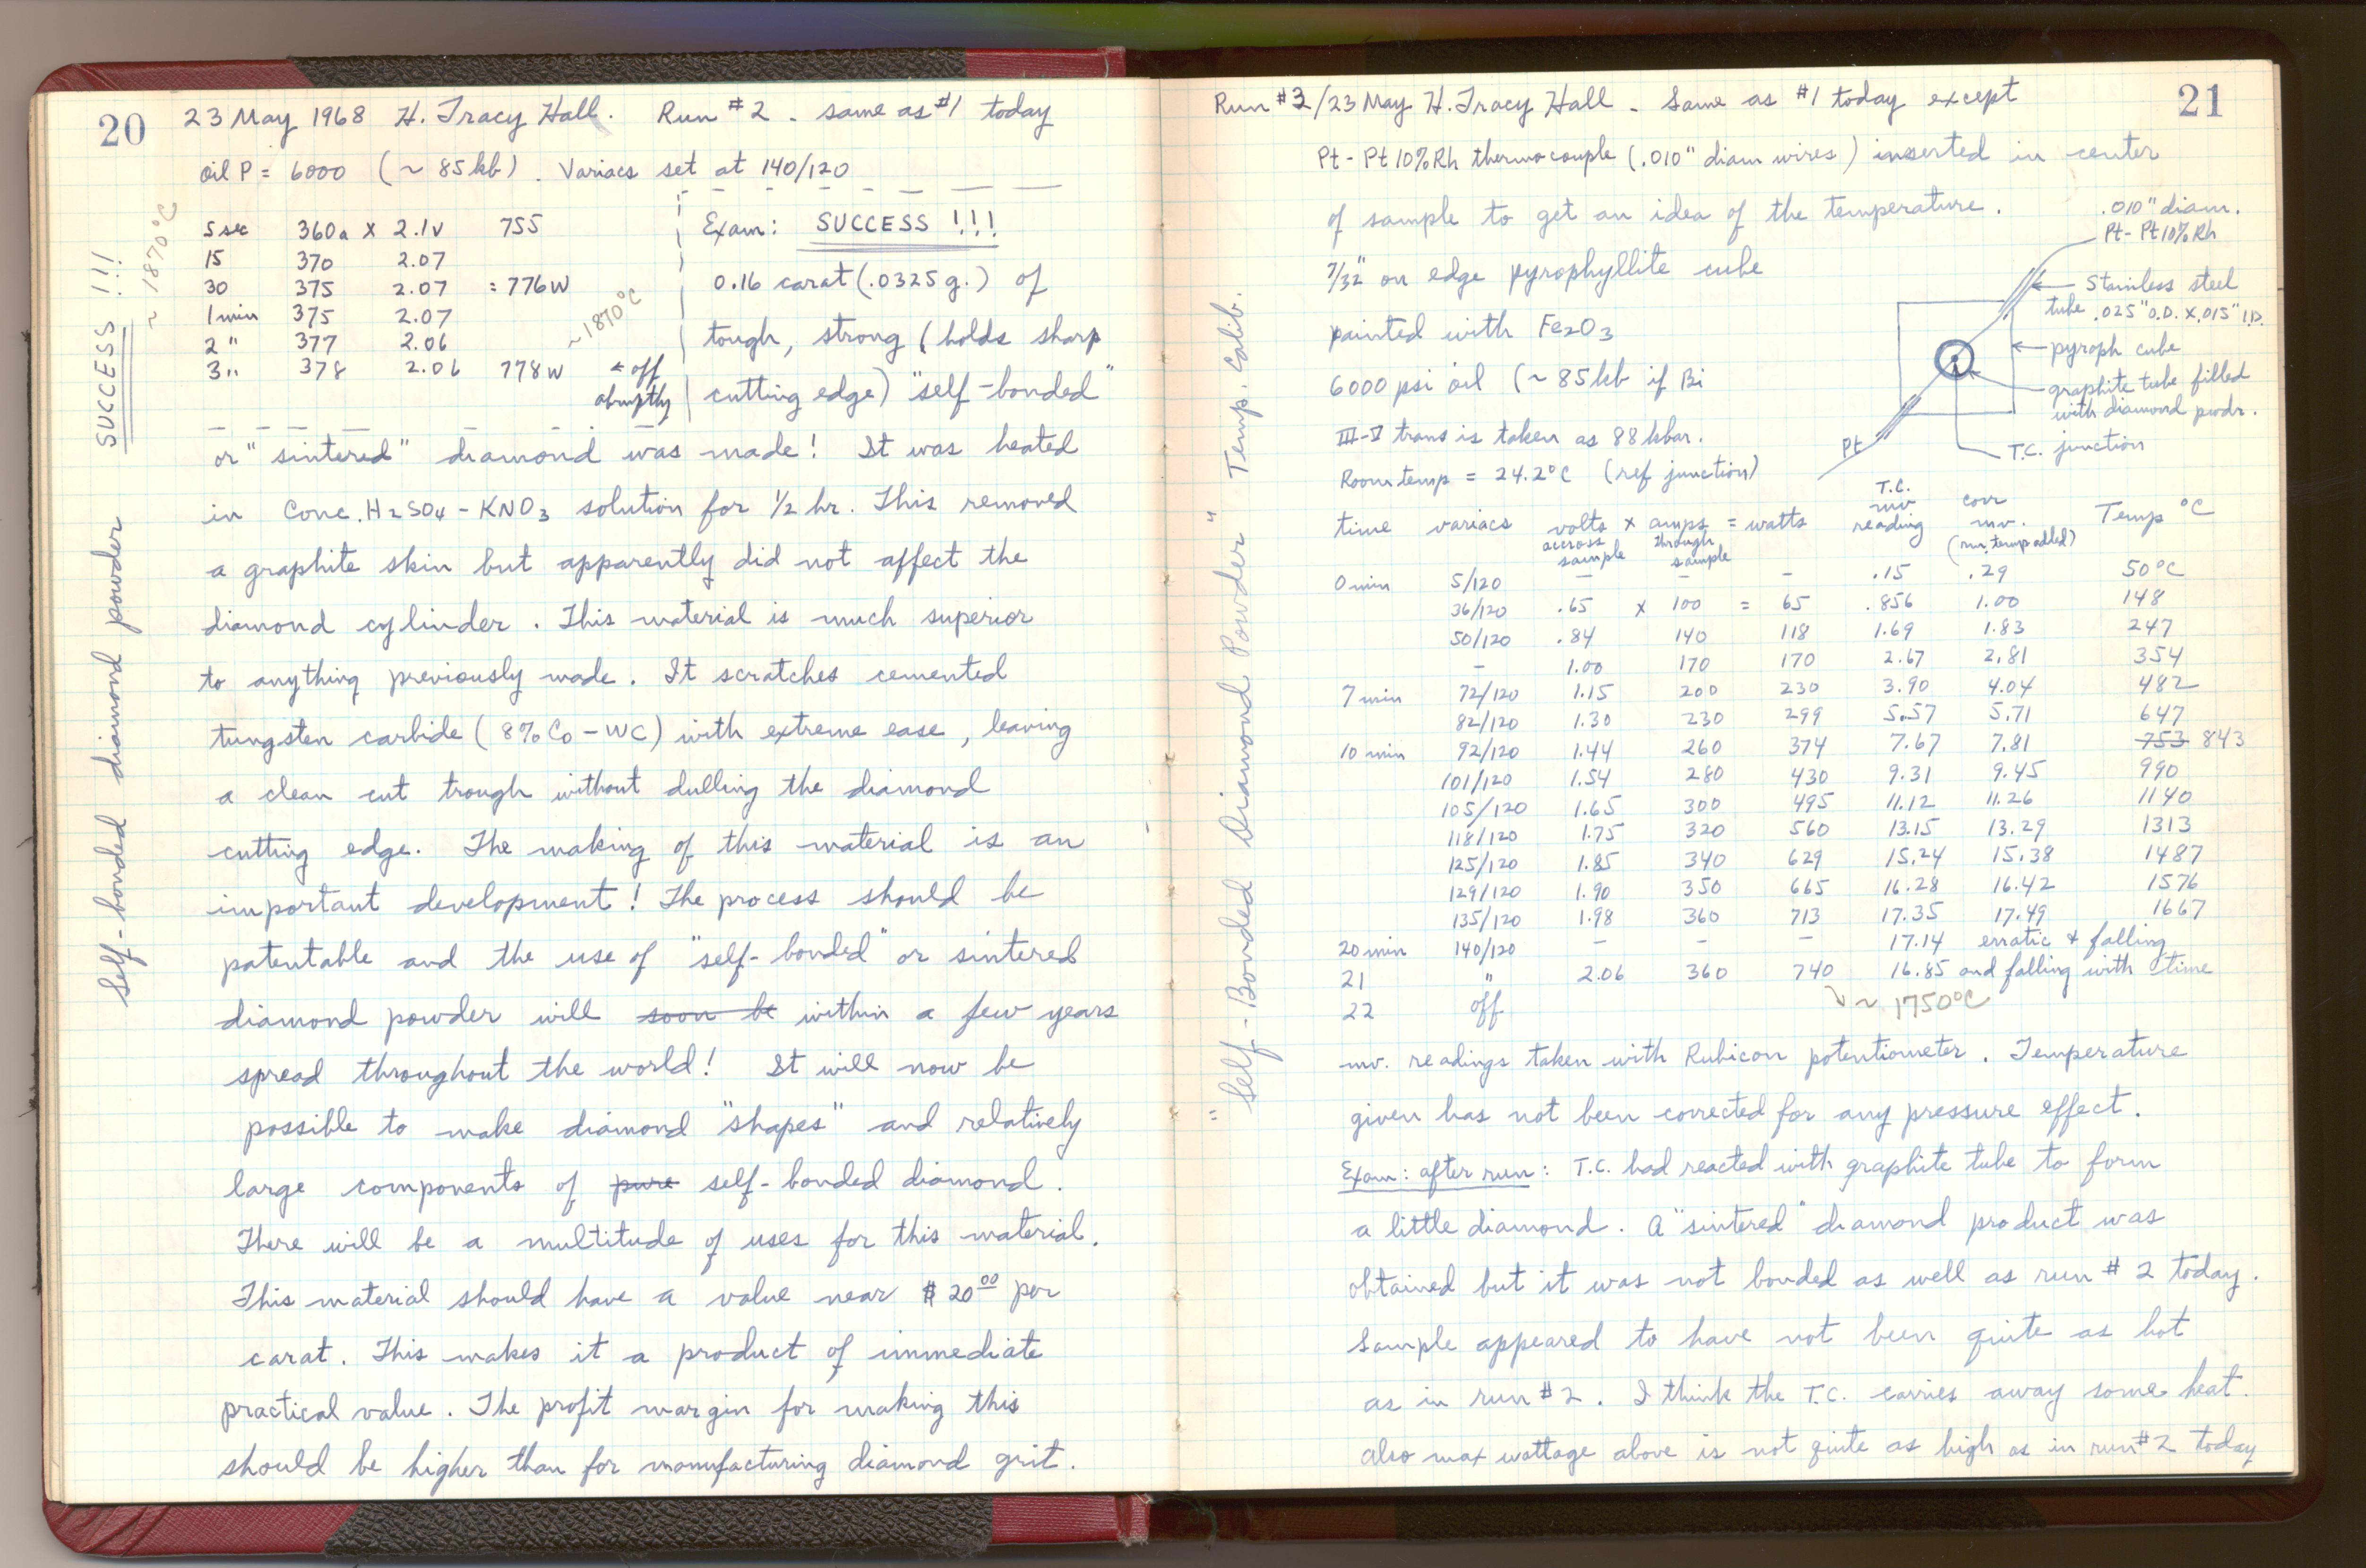 20
23 May 1968 H. Tracy Hall. Run #2 - same as #1 today
oil P = 6000 (~85kb). Variacs set at 140/120
5 sec 360a x 2.1v 755
15 370 2.07
30 375 2.07 = 776W
1 min 375 2.07
2 " 377 2.06
3 " 378 2.06 778W ← off
abruptly
~1870°C
Exam: SUCCESS !!!
0.16 carat (.0325 g.) of
tough, strong (holds sharp
cutting edge) "self-bonded"
or "sintered" diamond was made! It was heated
in Conc. H2SO4 - KNO3 solution for 1/2 hr. This removed
a graphite skin but apparently did not affect the
diamond cylinder. This material is much superior
to anything previously made. It scratches cemented
tungsten carbide (8% Co - WC) with extreme ease, leaving
a clean cut trough without dulling the diamond
cutting edge. The making of this material is an
important development! The process should be
patentable and the use of "self-bonded" or sintered
diamond powder will soon be within a few years
spread throughout the world! It will now be
possible to make diamond "shapes" and relatively
large components of pure self-bonded diamond.
There will be a multitude of uses for this material.
This material should have a value near $20.00 per
carat. This makes it a product of immediate
practical value. The profit margin for making this
should be higher than for manufacturing diamond grit.
Self-bonded diamond powder SUCCESS !!!
~1870°C
21
Run #3/23 May H. Tracy Hall - Same as #1 today except
Pt - Pt 10% Rh thermocouple (.010" diam wires) inserted in center
of sample to get an idea of the temperature.
7/32" on edge pyrophyllite cube
painted with Fe2O3
6000 psi oil (~85kb if Bi
III-V trans is taken as 88 kbar.
Room temp = 24.2°C (ref junction)
.010" diam.
Pt - Pt 10% Rh
Stainless steel
tube .025" O.D. x .015" I.D.
pyroph cube
graphite tube filled
with diamond pwdr.
T.C. junction
Pt
time variacs volts accross sample x amps through sample = watts T.C. mv reading corr mv. (rm. temp added) Temp °C
0 min 5/120 - - - .15 .29 50°C
36/120 .65 x 100 = 65 .856 1.00 148
50/120 .84 140 118 1.69 1.83 247
- 1.00 170 170 2.67 2.81 354
7 min 72/120 1.15 200 230 3.90 4.04 482
82/120 1.30 230 299 5.57 5.71 647
10 min 92/120 1.44 260 374 7.67 7.81 753 843
101/120 1.54 280 430 9.31 9.45 990
105/120 1.65 300 495 11.12 11.26 1140
118/120 1.75 320 560 13.15 13.29 1313
125/120 1.85 340 629 15.24 15.38 1487
129/120 1.90 350 665 16.28 16.42 1576
135/120 1.98 360 713 17.35 17.49 1667
20 min 140/120 - - - 17.14 erratic & falling
21 " 2.06 360 740 16.85 and falling with time
22 off ~1750°C
mv. readings taken with Rubicon potentiometer. Temperature
given has not been corrected for any pressure effect.
Exam: after run: T.C. had reacted with graphite tube to form
a little diamond. A "sintered" diamond product was
obtained but it was not bonded as well as run #2 today.
Sample appeared to have not been quite as hot
as in run #2. I think the T.C. carries away some heat.
also max wattage above is not quite as high as in run #2 today
"Self-Bonded Diamond Powder" Temp. Calib.